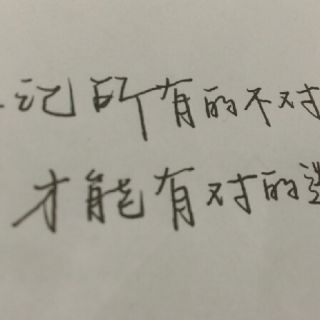 记所有的不对
才能有对的